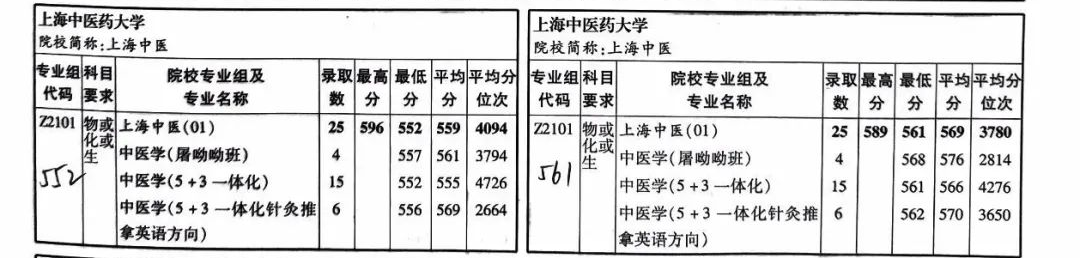 上海中医药大学
院校简称:上海中医
专业组代码 科目要求 院校专业组及专业名称 录取数 最高分 最低分 平均分 平均分位次
Z2101 物或化或生 上海中医(01) 25 596 552 559 4094
中医学(屠呦呦班) 4 557 561 3794
552 中医学(5+3一体化) 15 552 555 4726
中医学(5+3一体化针灸推 6 556 569 2664
拿英语方向)
上海中医药大学
院校简称:上海中医
专业组代码 科目要求 院校专业组及专业名称 录取数 最高分 最低分 平均分 平均分位次
Z2101 物或化或生 上海中医(01) 25 589 561 569 3780
中医学(屠呦呦班) 4 568 576 2814
561 中医学(5+3一体化) 15 561 566 4276
中医学(5+3一体化针灸推 6 562 570 3650
拿英语方向)